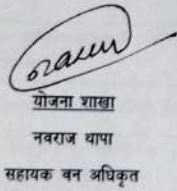 योजना शाखा
नवराज थापा
सहायक वन अधिकृत